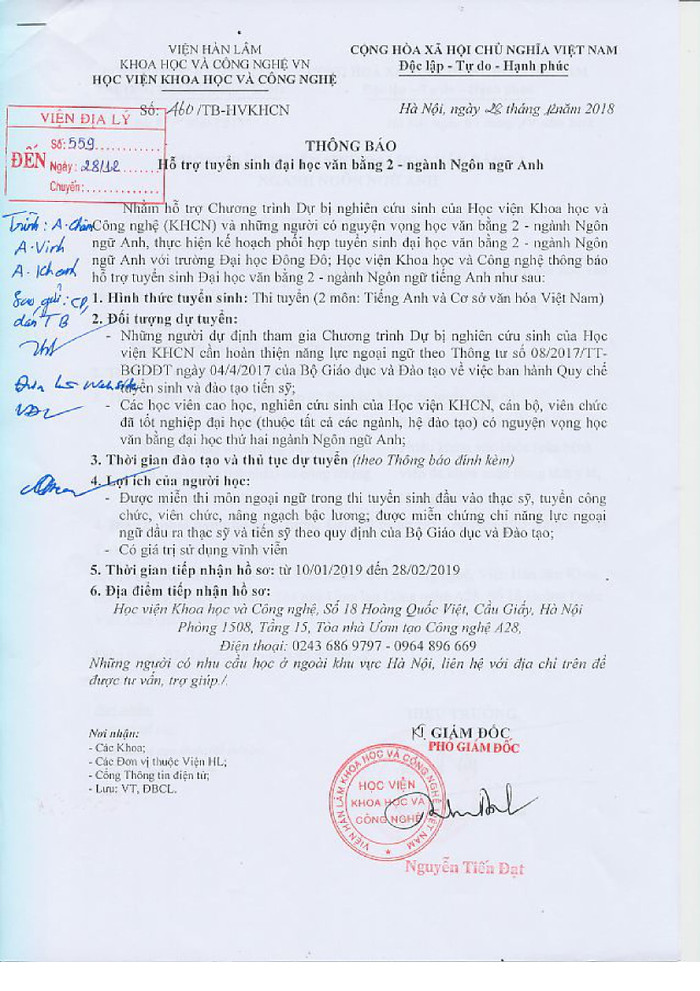 VIỆN HÀN LÂM
KHOA HỌC VÀ CÔNG NGHỆ VN
HỌC VIỆN KHOA HỌC VÀ CÔNG NGHỆ
CỘNG HÒA XÃ HỘI CHỦ NGHĨA VIỆT NAM
Độc lập - Tự do - Hạnh phúc
Số: 160/TB-HVKHCN
Hà Nội, ngày 28 tháng 12 năm 2018
VIỆN ĐỊA LÝ
ĐẾN
Số: 559
Ngày: 28/12
Chuyển:
THÔNG BÁO
Hỗ trợ tuyển sinh đại học văn bằng 2 - ngành Ngôn ngữ Anh
Trình: A. Chân
A. Vinh
A. Khanh
Sao gửi: CP,
dán TB
Đưa lên Website
Nhằm hỗ trợ Chương trình Dự bị nghiên cứu sinh của Học viện Khoa học và
Công nghệ (KHCN) và những người có nguyện vọng học văn bằng 2 - ngành Ngôn
ngữ Anh, thực hiện kế hoạch phối hợp tuyển sinh đại học văn bằng 2 - ngành Ngôn
ngữ Anh với trường Đại học Đông Đô; Học viện Khoa học và Công nghệ thông báo
hỗ trợ tuyển sinh Đại học văn bằng 2 - ngành Ngôn ngữ tiếng Anh như sau:
1. Hình thức tuyển sinh: Thi tuyển (2 môn: Tiếng Anh và Cơ sở văn hóa Việt Nam)
2. Đối tượng dự tuyển:
- Những người dự định tham gia Chương trình Dự bị nghiên cứu sinh của Học
viện KHCN cần hoàn thiện năng lực ngoại ngữ theo Thông tư số 08/2017/TT-
BGDĐT ngày 04/4/2017 của Bộ Giáo dục và Đào tạo về việc ban hành Quy chế
tuyển sinh và đào tạo tiến sỹ;
- Các học viên cao học, nghiên cứu sinh của Học viện KHCN, cán bộ, viên chức
đã tốt nghiệp đại học (thuộc tất cả các ngành, hệ đào tạo) có nguyện vọng học
văn bằng đại học thứ hai ngành Ngôn ngữ Anh;
3. Thời gian đào tạo và thủ tục dự tuyển (theo Thông báo đính kèm)
4. Lợi ích của người học:
- Được miễn thi môn ngoại ngữ trong thi tuyển sinh đầu vào thạc sỹ, tuyển công
chức, viên chức, nâng ngạch bậc lương; được miễn chứng chỉ năng lực ngoại
ngữ đầu ra thạc sỹ và tiến sỹ theo quy định của Bộ Giáo dục và Đào tạo;
- Có giá trị sử dụng vĩnh viễn
5. Thời gian tiếp nhận hồ sơ: từ 10/01/2019 đến 28/02/2019
6. Địa điểm tiếp nhận hồ sơ:
Học viện Khoa học và Công nghệ, Số 18 Hoàng Quốc Việt, Cầu Giấy, Hà Nội
Phòng 1508, Tầng 15, Tòa nhà Ươm tạo Công nghệ A28,
Điện thoại: 0243 686 9797 - 0964 896 669
Những người có nhu cầu học ở ngoài khu vực Hà Nội, liên hệ với địa chỉ trên để
được tư vấn, trợ giúp./.
Nơi nhận:
- Các Khoa;
- Các Đơn vị thuộc Viện HL;
- Cổng Thông tin điện tử;
- Lưu: VT, ĐBCL.
KT GIÁM ĐỐC
PHÓ GIÁM ĐỐC
VIỆN HÀN LÂM KHOA HỌC VÀ CÔNG NGHỆ VIỆT NAM
HỌC VIỆN
KHOA HỌC VÀ
CÔNG NGHỆ
Nguyễn Tiến Đạt